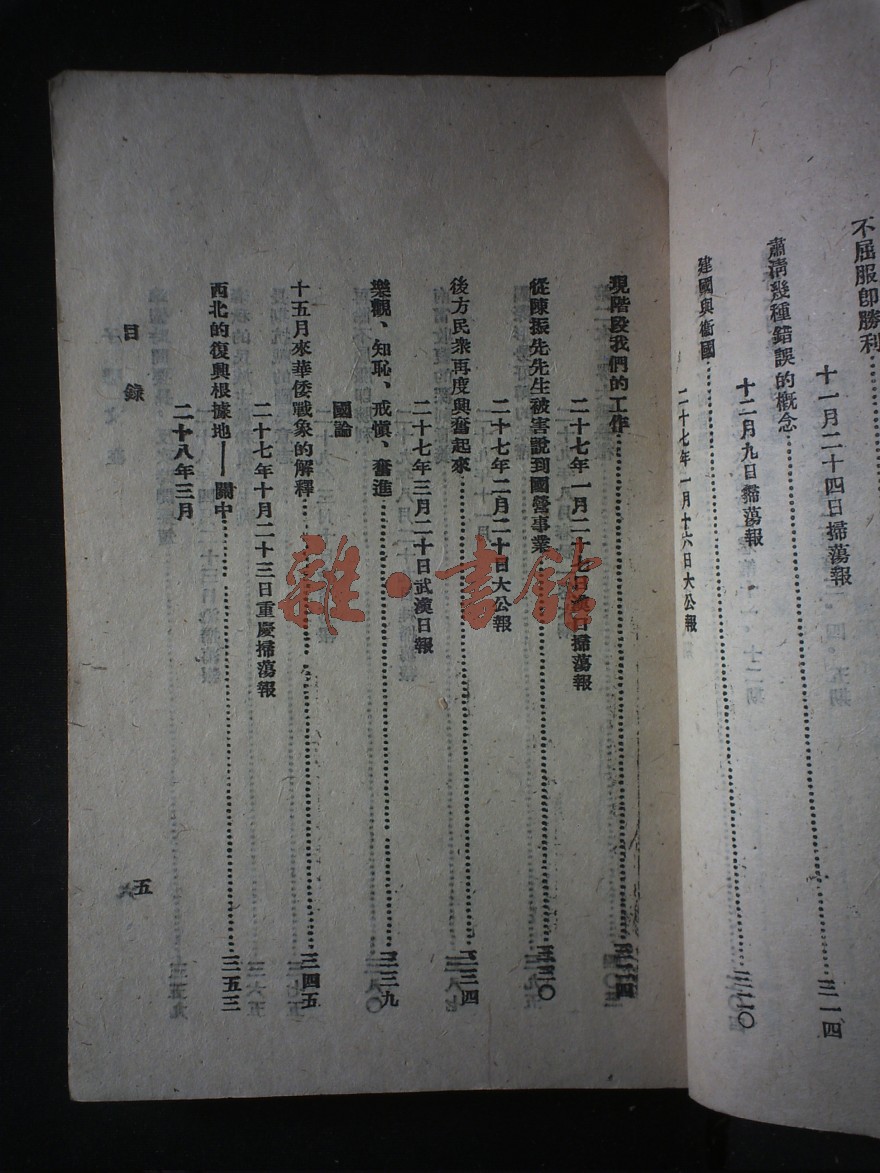 不屈服卽勝利
十一月二十四日掃蕩報
肅淸幾種錯誤的概念……三一四
十二月九日掃蕩報
建國與衞國……三二〇
二十七年一月十六日大公報
現階段我們的工作……
二十七年一月二十七日漢口掃蕩報
從陳振先先生被害說到國營事業……三三〇
二十七年二月二十日大公報
後方民衆再度興奮起來……三三四
二十七年三月二十日武漢日報
樂觀、知恥、戒愼、奮進……三三九
國論
十五月來華倭戰象的解釋……三四五
二十七年十月二十三日重慶掃蕩報
西北的復興根據地——關中……三五三
二十八年三月
目錄 五
雜·書館